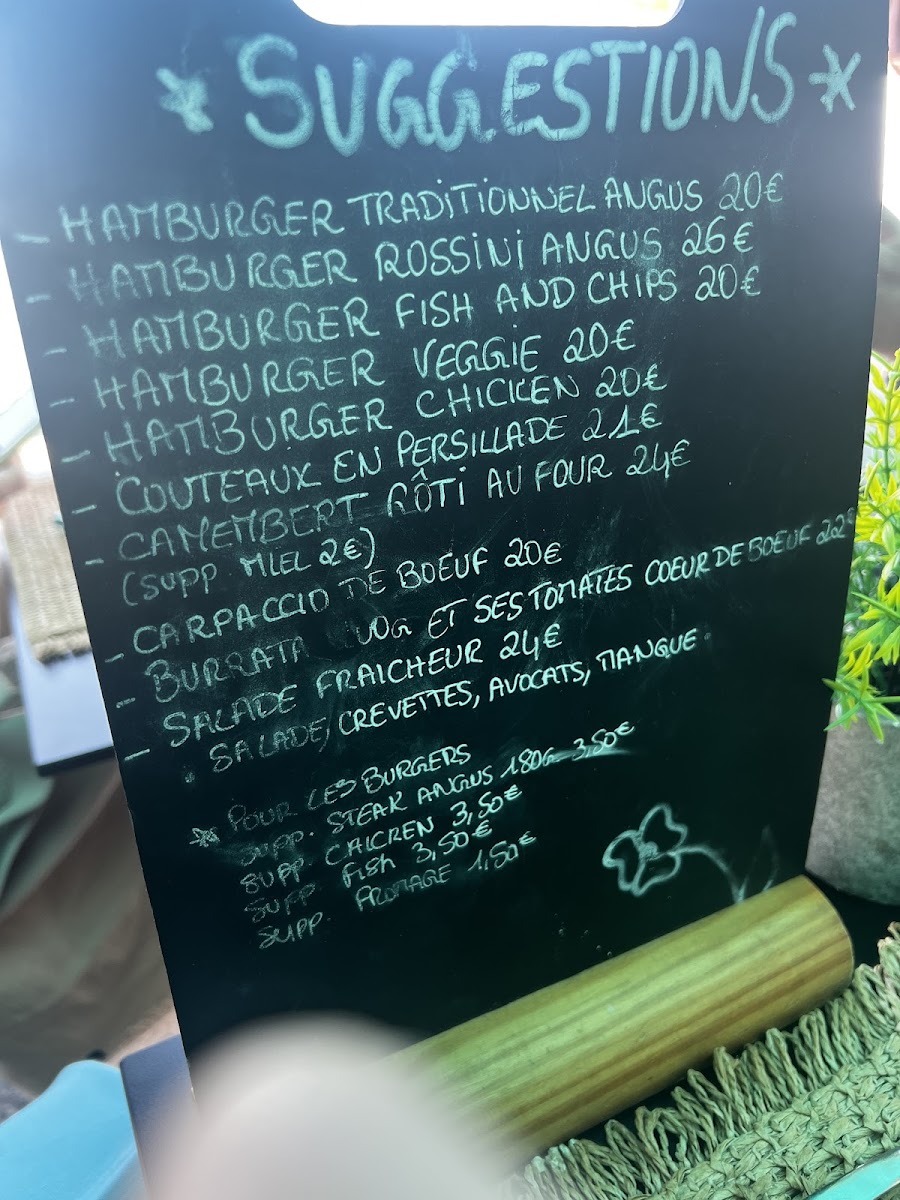 * SUGGESTIONS *
- HAMBURGER TRADITIONNEL ANGUS 20€
- HAMBURGER ROSSINI ANGUS 26€
- HAMBURGER FISH AND CHIPS 20€
- HAMBURGER VEGGIE 20€
- HAMBURGER CHICKEN 20€
- COUTEAUX EN PERSILLADE 21€
- CAMEMBERT RÔTI AU FOUR 24€
(SUPP MIEL 2€)
- CARPACCIO DE BOEUF 20€
- BURRATA ET SES TOMATES COEUR DE BOEUF 22€
- SALADE FRAICHEUR 24€
. SALADE, CREVETTES, AVOCATS, MANGUE.
* POUR LES BURGERS
SUPP. STEAK ANGUS 180G 3,50€
SUPP. CAICREN 3,50€
SUPP FISH 3,50€
SUPP. FROMAGE 1,50€